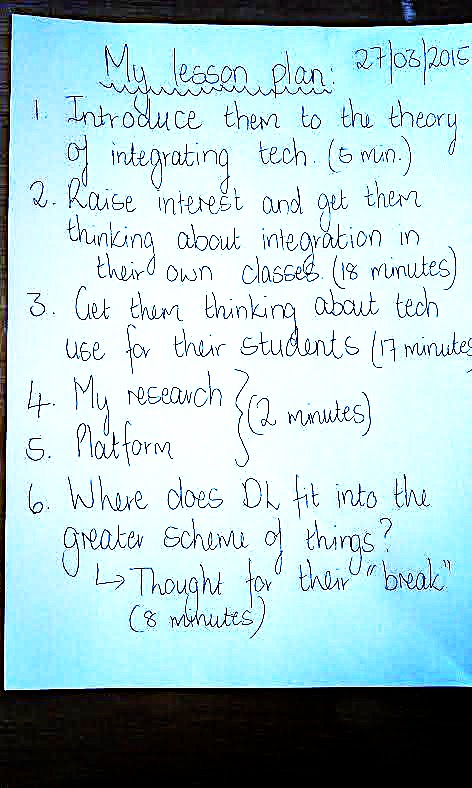 My lesson plan: 27/03/2015
1. Introduce them to the theory
of integrating tech. (5 min.)
2. Raise interest and get them
thinking about integration in
their own classes. (18 minutes)
3. Get them thinking about tech
use for their students (17 minutes
4. My research
5. Platform } (2 minutes)
6. Where does DL fit into the
greater scheme of things?
↳ Thought for their "break"
(8 minutes)